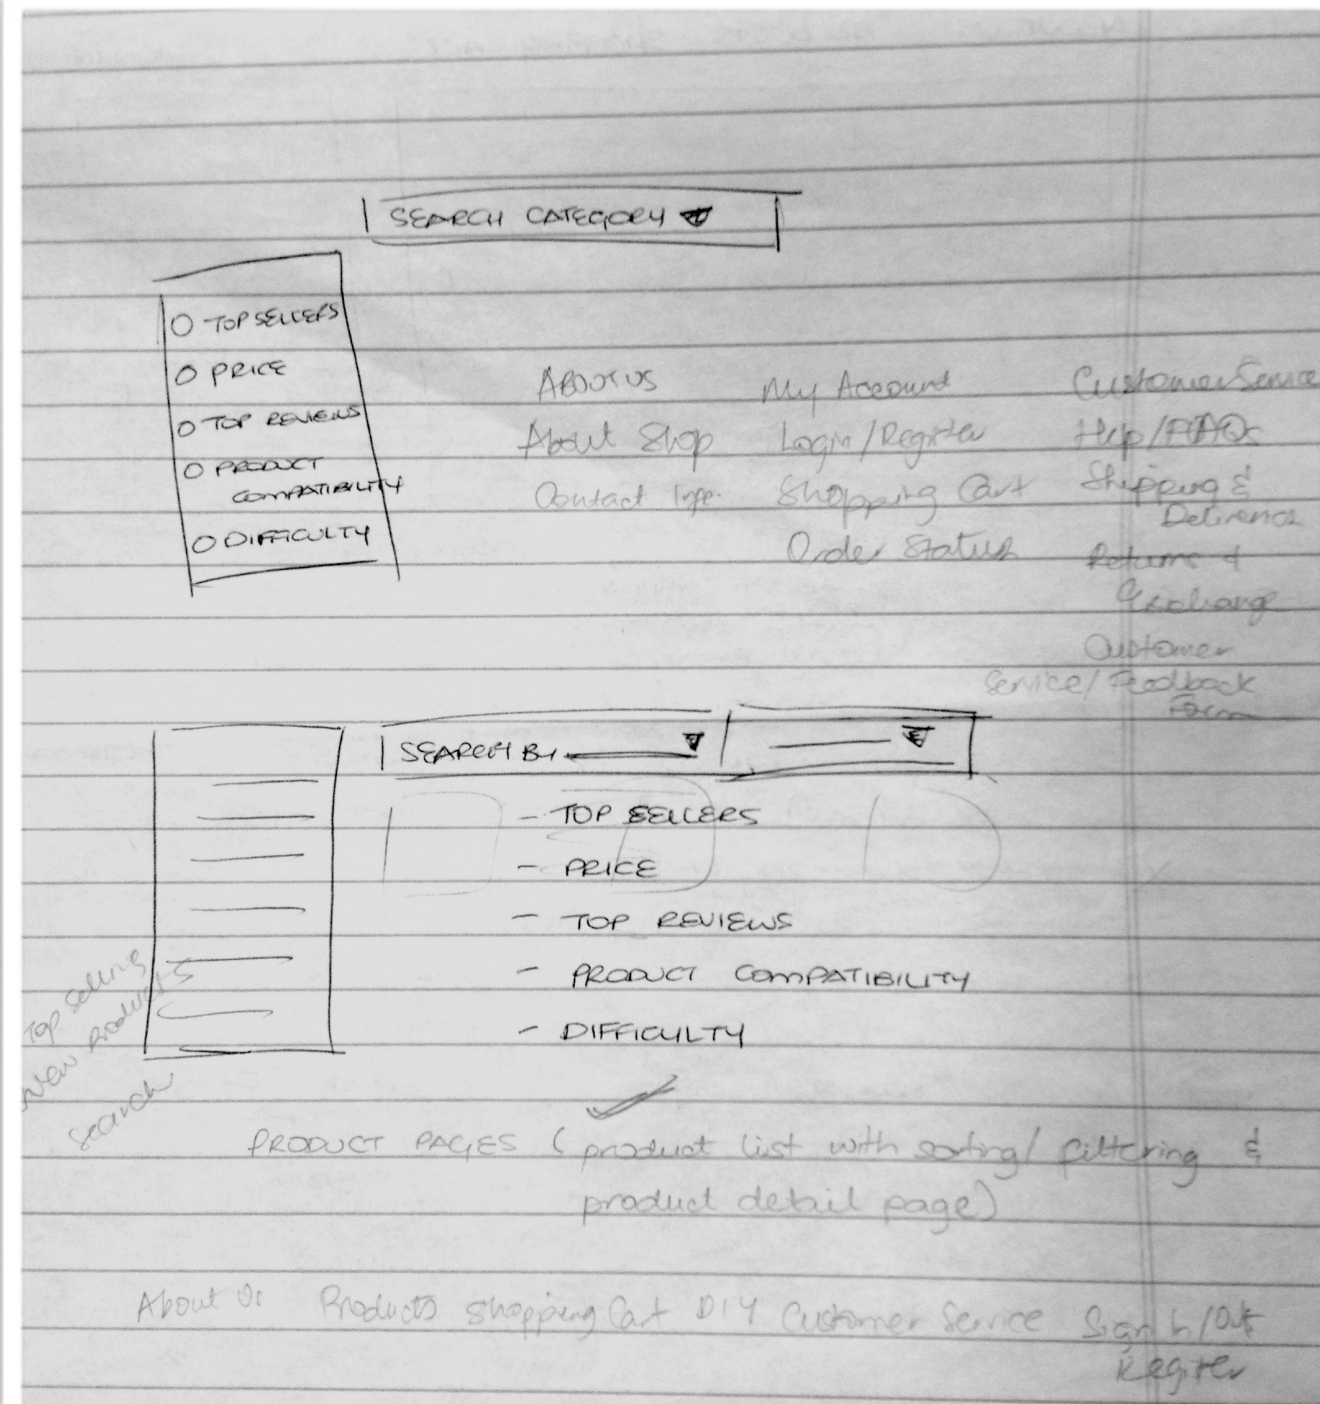 SEARCH CATEGORY
O TOP SELLERS
O PRICE
O TOP REVIEWS
O PRODUCT
COMPATIBILITY
O DIFFICULTY
ABOUT US
About Shop
Contact Info.
My Account
Login/Register
Shopping Cart
Order Status
Customer Service
Help/FAQs
Shipping &
Deliveries
Returns &
Exchange
Customer
Service/Feedback
Form
SEARCH BY
- TOP SELLERS
- PRICE
- TOP REVIEWS
- PRODUCT COMPATIBILITY
- DIFFICULTY
Top Selling
New Products
Search
PRODUCT PAGES (product list with sorting/filtering &
product detail page)
About Us Products Shopping Cart DIY Customer Service Sign In/Out
Register